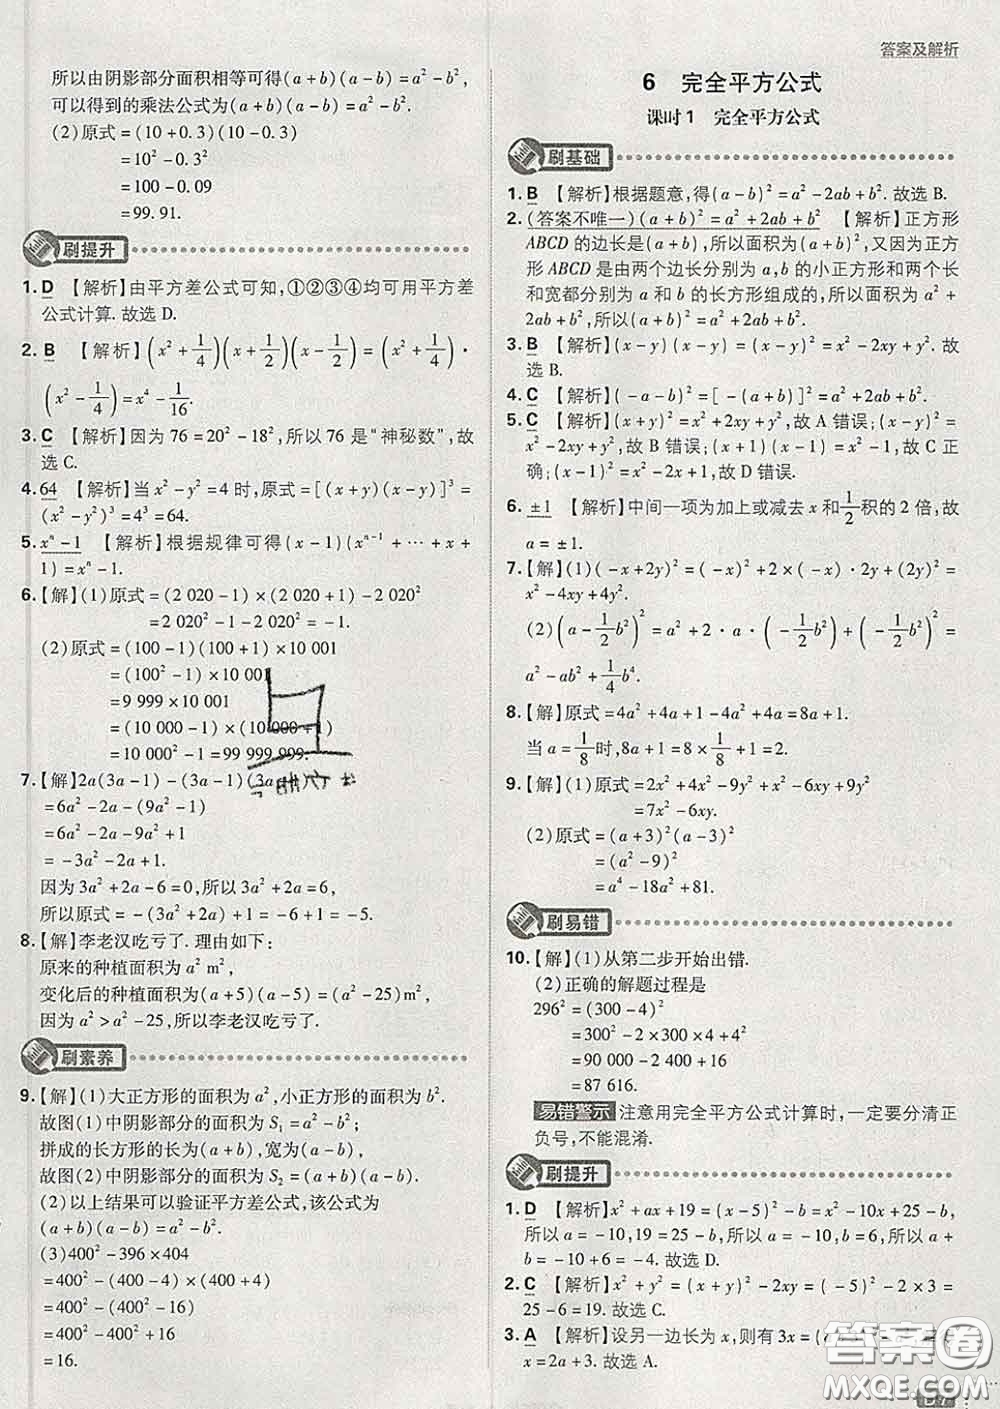 答案及解析
所以由阴影部分面积相等可得(a+b)(a-b)=a²-b²,
可以得到的乘法公式为(a+b)(a-b)=a²-b².
(2)原式=(10+0.3)(10-0.3)
=10²-0.3²
=100-0.09
=99.91.
刷提升
1. D 【解析】由平方差公式可知,①②③④均可用平方差
公式计算.故选 D.
2. B 【解析】(x²+1/4)(x+1/2)(x-1/2)=(x²+1/4)·
(x²-1/4)=x⁴-1/16.
3. C 【解析】因为 76=20²-18²,所以 76 是“神秘数”,故
选 C.
4. 64 【解析】当 x²-y²=4 时,原式=[(x+y)(x-y)]³=
(x²-y²)³=4³=64.
5. xⁿ-1 【解析】根据规律可得(x-1)(xⁿ⁻¹+…+x+
1)=xⁿ-1.
6.【解】(1)原式=(2 020-1)×(2 020+1)-2 020²
=2 020²-1-2 020²=-1.
(2)原式=(100-1)(100+1)×10 001
=(100²-1)×10 001
=9 999×10 001
=(10 000-1)×(10 000+1)
=10 000²-1=99 999 999.
7.【解】2a(3a-1)-(3a-1)(3a
=6a²-2a-(9a²-1)
=6a²-2a-9a²+1
=-3a²-2a+1.
因为 3a²+2a-6=0,所以 3a²+2a=6,
所以原式=-(3a²+2a)+1=-6+1=-5.
8.【解】李老汉吃亏了.理由如下:
原来的种植面积为 a² m²,
变化后的种植面积为(a+5)(a-5)=(a²-25)m²,
因为 a²>a²-25,所以李老汉吃亏了.
刷素养
9.【解】(1)大正方形的面积为 a²,小正方形的面积为 b²,
故图(1)中阴影部分的面积为 S₁=a²-b²;
拼成的长方形的长为(a+b),宽为(a-b),
故图(2)中阴影部分的面积为 S₂=(a+b)(a-b).
(2)以上结果可以验证平方差公式,该公式为
(a+b)(a-b)=a²-b².
(3)400²-396×404
=400²-(400-4)×(400+4)
=400²-(400²-16)
=400²-400²+16
=16.
6 完全平方公式
课时1 完全平方公式
刷基础
1. B 【解析】根据题意,得(a-b)²=a²-2ab+b².故选 B.
2. (答案不唯一)(a+b)²=a²+2ab+b² 【解析】正方形
ABCD 的边长是(a+b),所以面积为(a+b)²,又因为正方
形 ABCD 是由两个边长分别为 a,b 的小正方形和两个长
和宽都分别为 a 和 b 的长方形组成的,所以面积为 a²+
2ab+b²,所以(a+b)²=a²+2ab+b².
3. B 【解析】(x-y)(x-y)=(x-y)²=x²-2xy+y².故
选 B.
4. C 【解析】(-a-b)²=[-(a+b)]²=a²+2ab+b².
5. C 【解析】(x+y)²=x²+2xy+y²,故 A 错误;(x-y)²=
x²-2xy+y²,故 B 错误;(x+1)(x-1)=x²-1,故 C 正
确;(x-1)²=x²-2x+1,故 D 错误.
6. ±1 【解析】中间一项为加上或减去 x 和1/2积的 2 倍,故
a=±1.
7.【解】(1)(-x+2y)²=(-x)²+2×(-x)·2y+(2y)²=
x²-4xy+4y².
(2)(a-1/2b²)²=a²+2·a·(-1/2b²)+(-1/2b²)²=
a²-ab²+1/4b⁴.
8.【解】原式=4a²+4a+1-4a²+4a=8a+1.
当 a=1/8时,8a+1=8×1/8+1=2.
9.【解】(1)原式=2x²+4x²-9y²+x²-6xy+9y²
=7x²-6xy.
(2)原式=(a+3)²(a-3)²
=(a²-9)²
=a⁴-18a²+81.
刷易错
10.【解】(1)从第二步开始出错.
(2)正确的解题过程是
296²=(300-4)²
=300²-2×300×4+4²
=90 000-2 400+16
=87 616.
易错警示 注意用完全平方公式计算时,一定要分清正
负号,不能混淆.
刷提升
1. D 【解析】x²+ax+19=(x-5)²-b=x²-10x+25-b,
所以 a=-10,19=25-b,所以 a=-10,b=6,所以 a+
b=-10+6=-4.故选 D.
2. C 【解析】x²+y²=(x+y)²-2xy=(-5)²-2×3=
25-6=19.故选 C.
3. A 【解析】设另一边长为 x,则有 3x=(
x=2a+3.故选 A.
答案卷
MXQE.COM